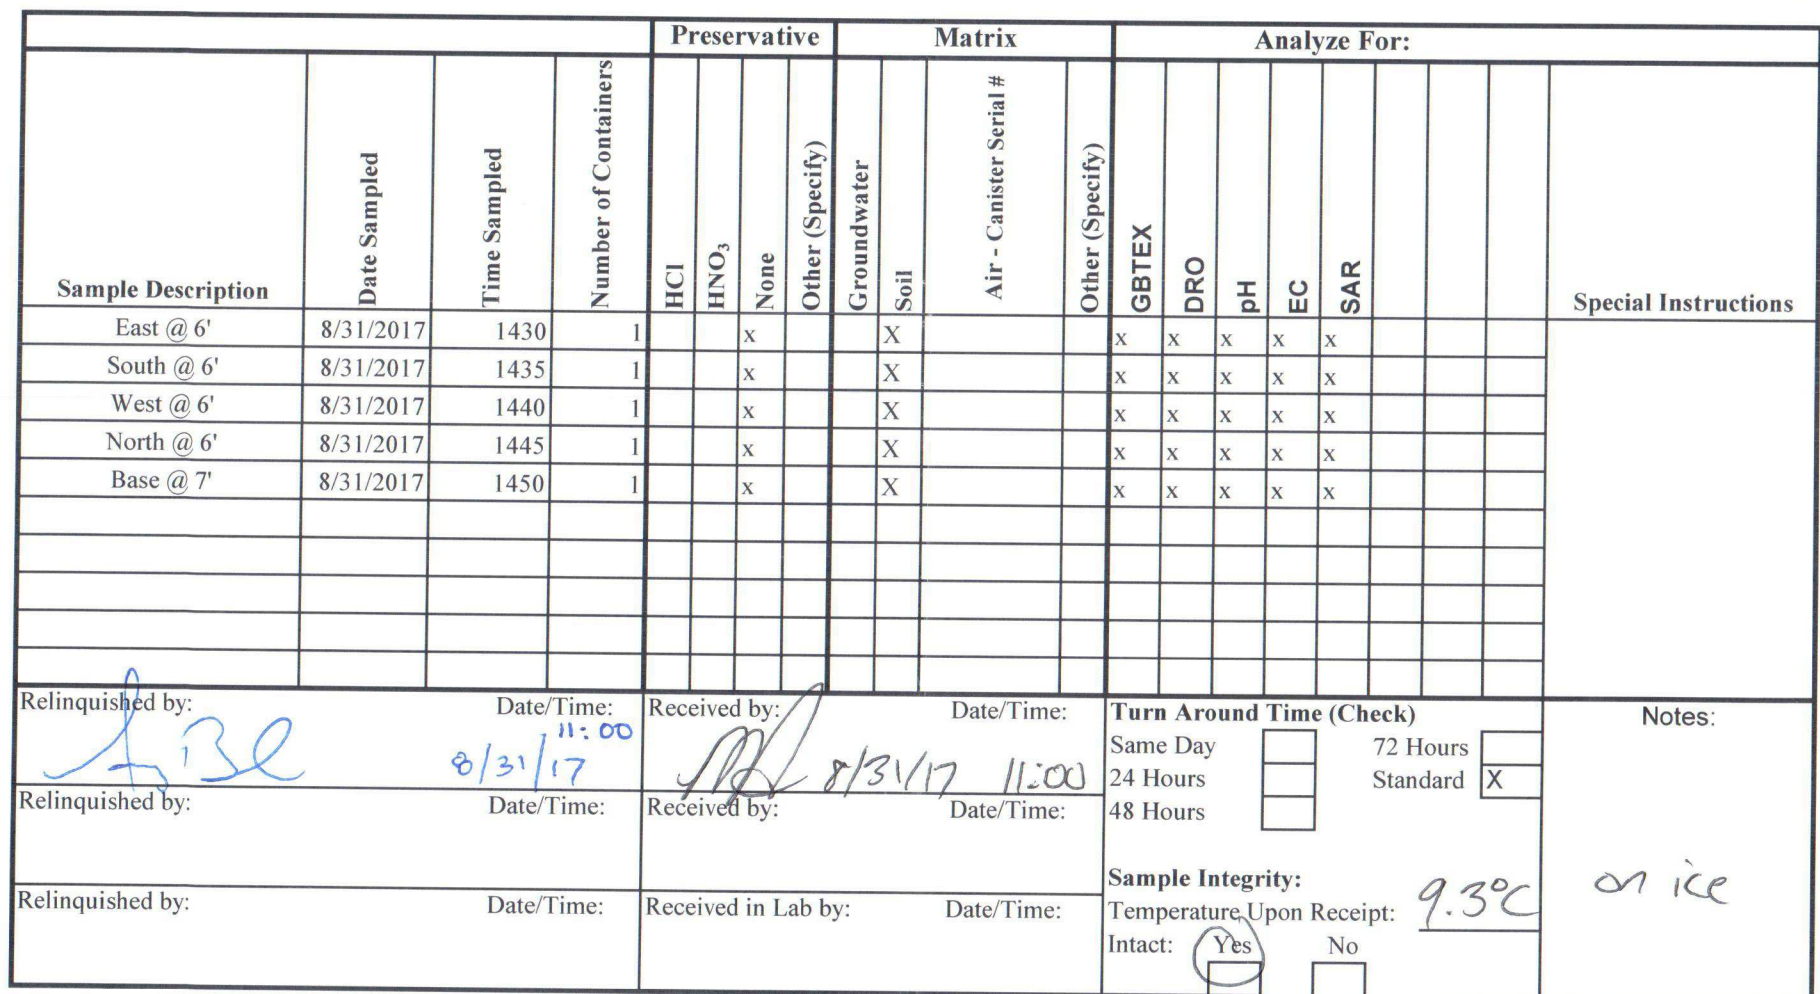 Preservative Matrix Analyze For:
Sample Description Date Sampled Time Sampled Number of Containers HCl HNO₃ None Other (Specify) Groundwater Soil Air - Canister Serial # Other (Specify) GBTEX DRO pH EC SAR Special Instructions
East @ 6' 8/31/2017 1430 1 x X x x x x x
South @ 6' 8/31/2017 1435 1 x X x x x x x
West @ 6' 8/31/2017 1440 1 x X x x x x x
North @ 6' 8/31/2017 1445 1 x X x x x x x
Base @ 7' 8/31/2017 1450 1 x X x x x x x
Relinquished by: Date/Time:
11:00
8/31/17
Received by: Date/Time:
8/31/17 11:00
Relinquished by: Date/Time:
Received by: Date/Time:
Relinquished by: Date/Time:
Received in Lab by: Date/Time:
Turn Around Time (Check)
Same Day 72 Hours
24 Hours Standard X
48 Hours
Sample Integrity:
Temperature Upon Receipt: 9.3°C
Intact: Yes No
Notes:
on ice